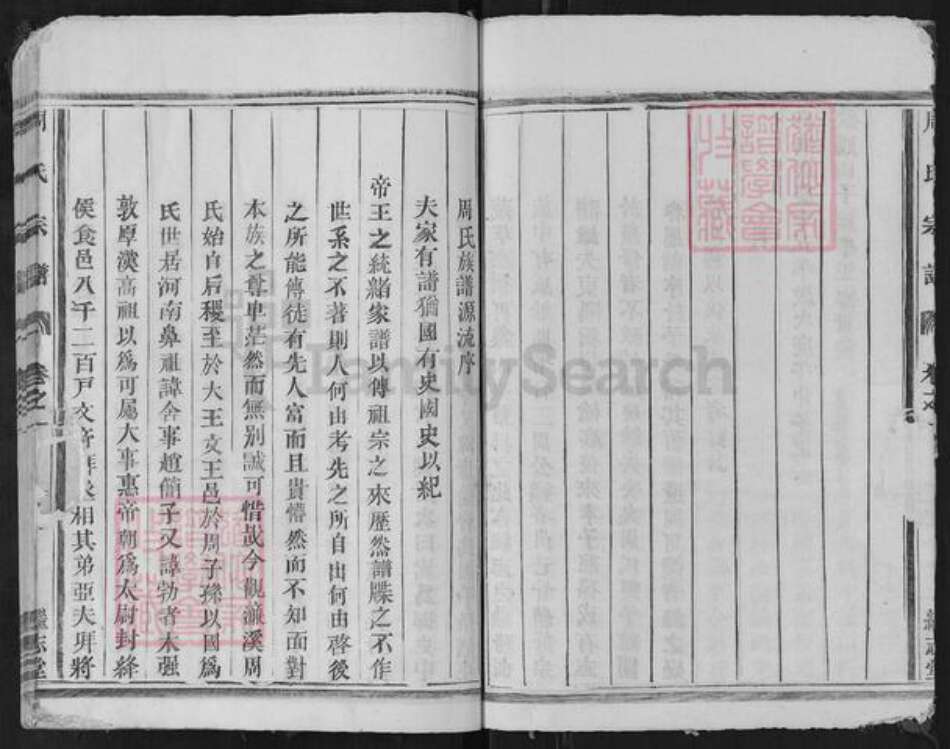 周氏族譜源流序
夫家有譜猶國有史國史以紀
帝王之統緒家譜以傳祖宗之來歷然譜牒之不作
世系之不著則人何由考先之所自出何由啓後
之所能傳徒有先人富而且貴懵然而不知面對
本族之尊卑茫然而無别誠可惜哉今觀濂溪周
氏始自后稷至於大王文王邑於周子孫以國爲
氏世居河南鼻祖諱舍事趙簡子又諱勃者木强
敦厚漢高祖以爲可屬大事惠帝朝爲太尉封絳
侯食邑八千二百戸文帝拜丞相其弟亞夫拜將
周氏宗譜
卷之
繼志堂
周氏宗譜
卷之
繼志堂
FamilySearch